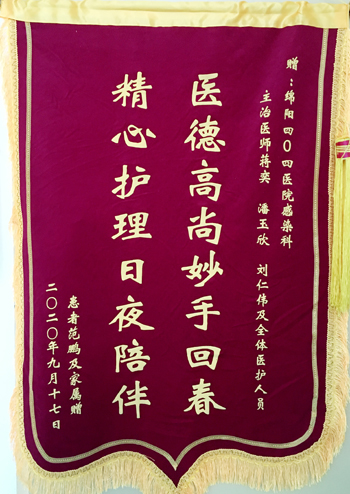 赠：绵阳四〇四医院感染科
主治医师蒋奕 潘玉欣 刘仁伟及全体医护人员
医德高尚妙手回春
精心护理日夜陪伴
患者范鹏及家属赠
二〇二〇年九月十七日